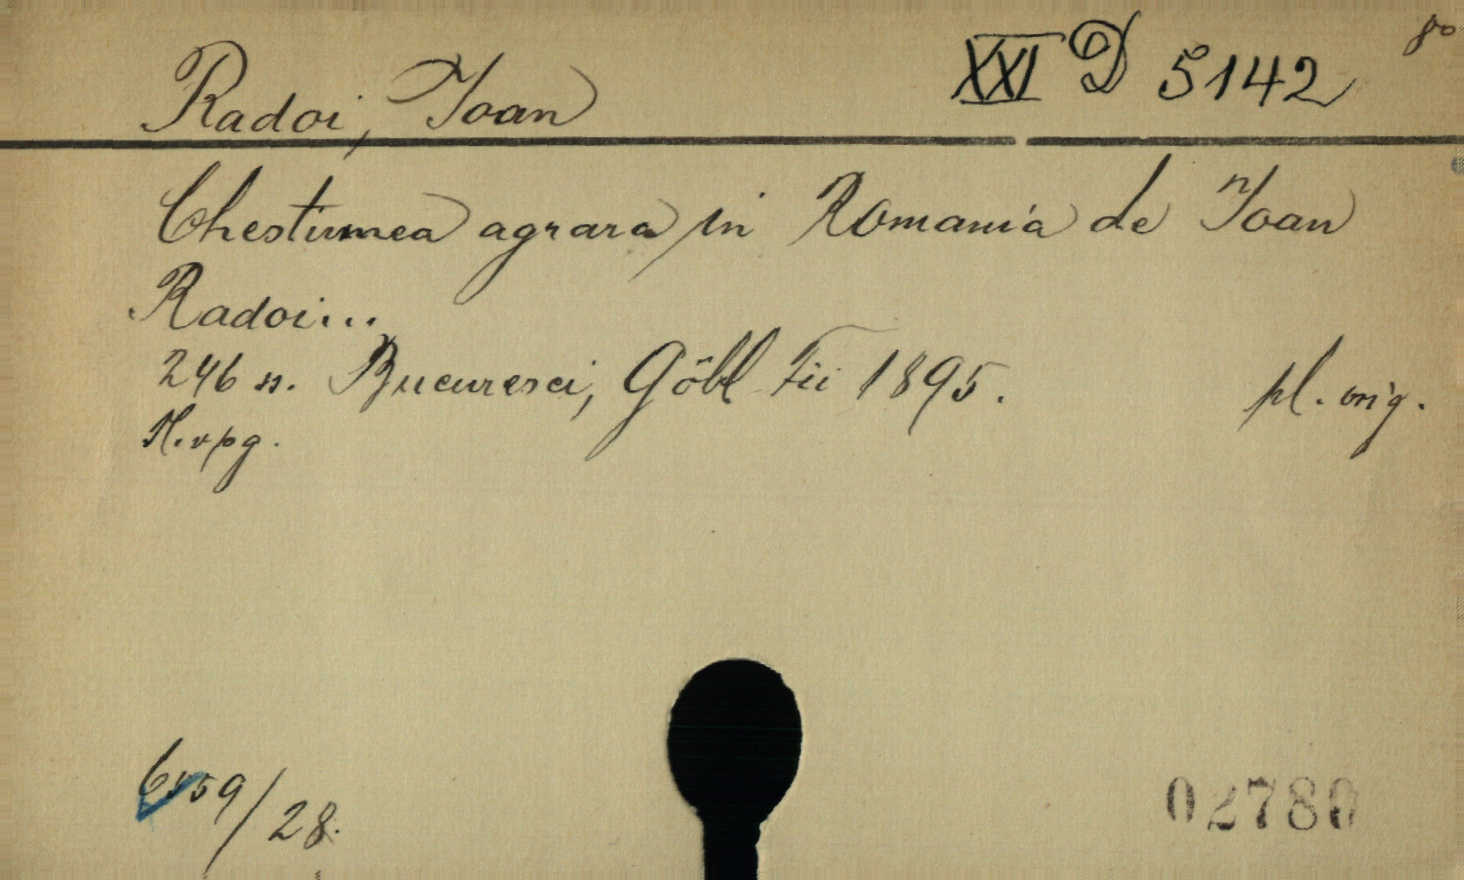 XXI D 5142 8°
Radoi, Ioan
Chestiunea agrara in Romania de Ioan
Radoi...
246 s. Bucuresci, Göbl Fii 1895. pl. orig.
N. vpg.
6559/28.
02780